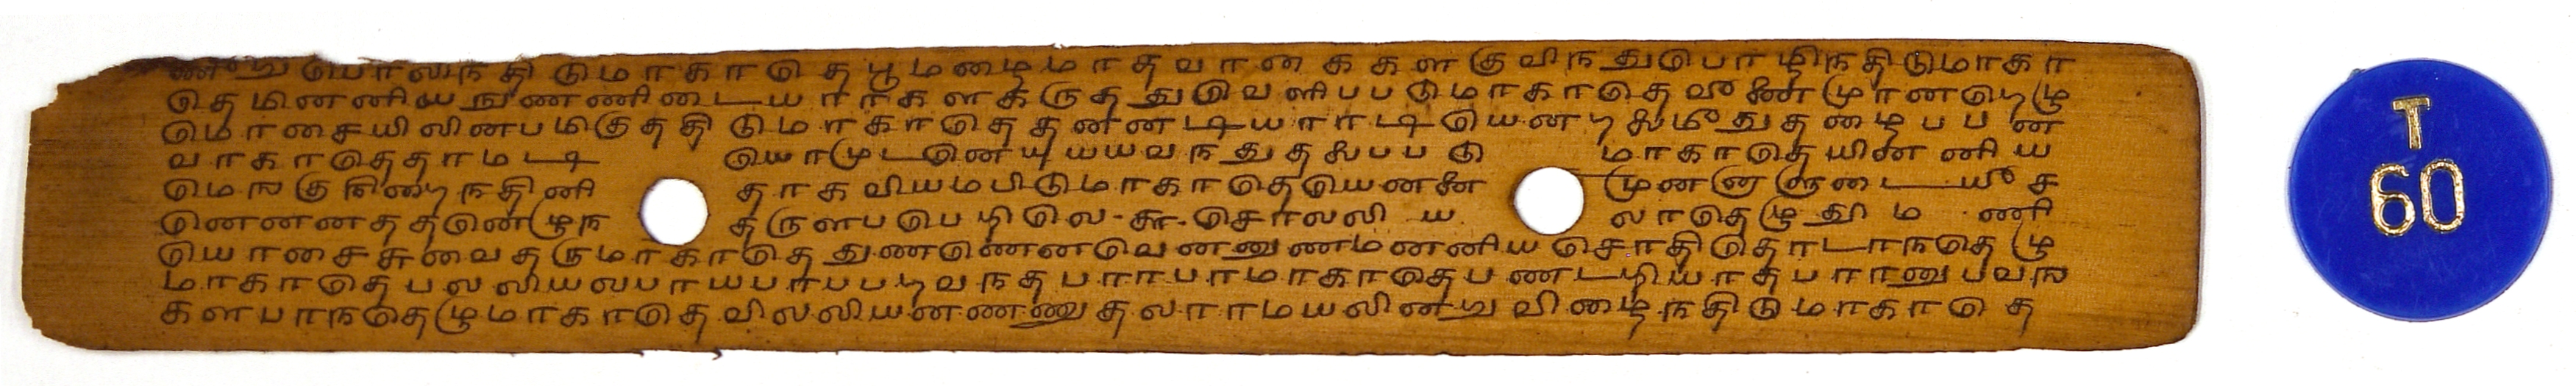 ணறு பொலிநதிடுமாகாதெ பூமழைமாதவாகைகளகுவிநதுபொழிநதிடுமாகா
தெமினனியலநுணணிடையாாகளகருததுவெளிபபடுமாகாதெவீணைமுானறெழு
மொசையிலினபமிகுததிடுமாகாதெதனனடியாாடியெனறலைமீதுதழைபபன
வாகாதெதாமடி யொமுடனெயுயயவநதுதலைபபடு மாகாதெயினனிய
மெஙகுநிறைநதினி தாகவியமபிடுமாகாதெயெனனை முனனாளுடையீச
னெனனததனெழுந தருளபபெறிலெ-௬-சொலலிய லாதெழுதூமணி
யொசைசுவைதருமாகாதெதுணணெனவெனனுணமனனியசொதிதொடாநதெழு
மாகாதெபலலியலபாயபாபபறவநதபாாபாமாகாதெபணடறியாதபாானுபவங
களபாநதெழுமாகாதெவிலலியனணணுதலாாமயலினறுவிளைநதிடுமாகாதெ
T
60